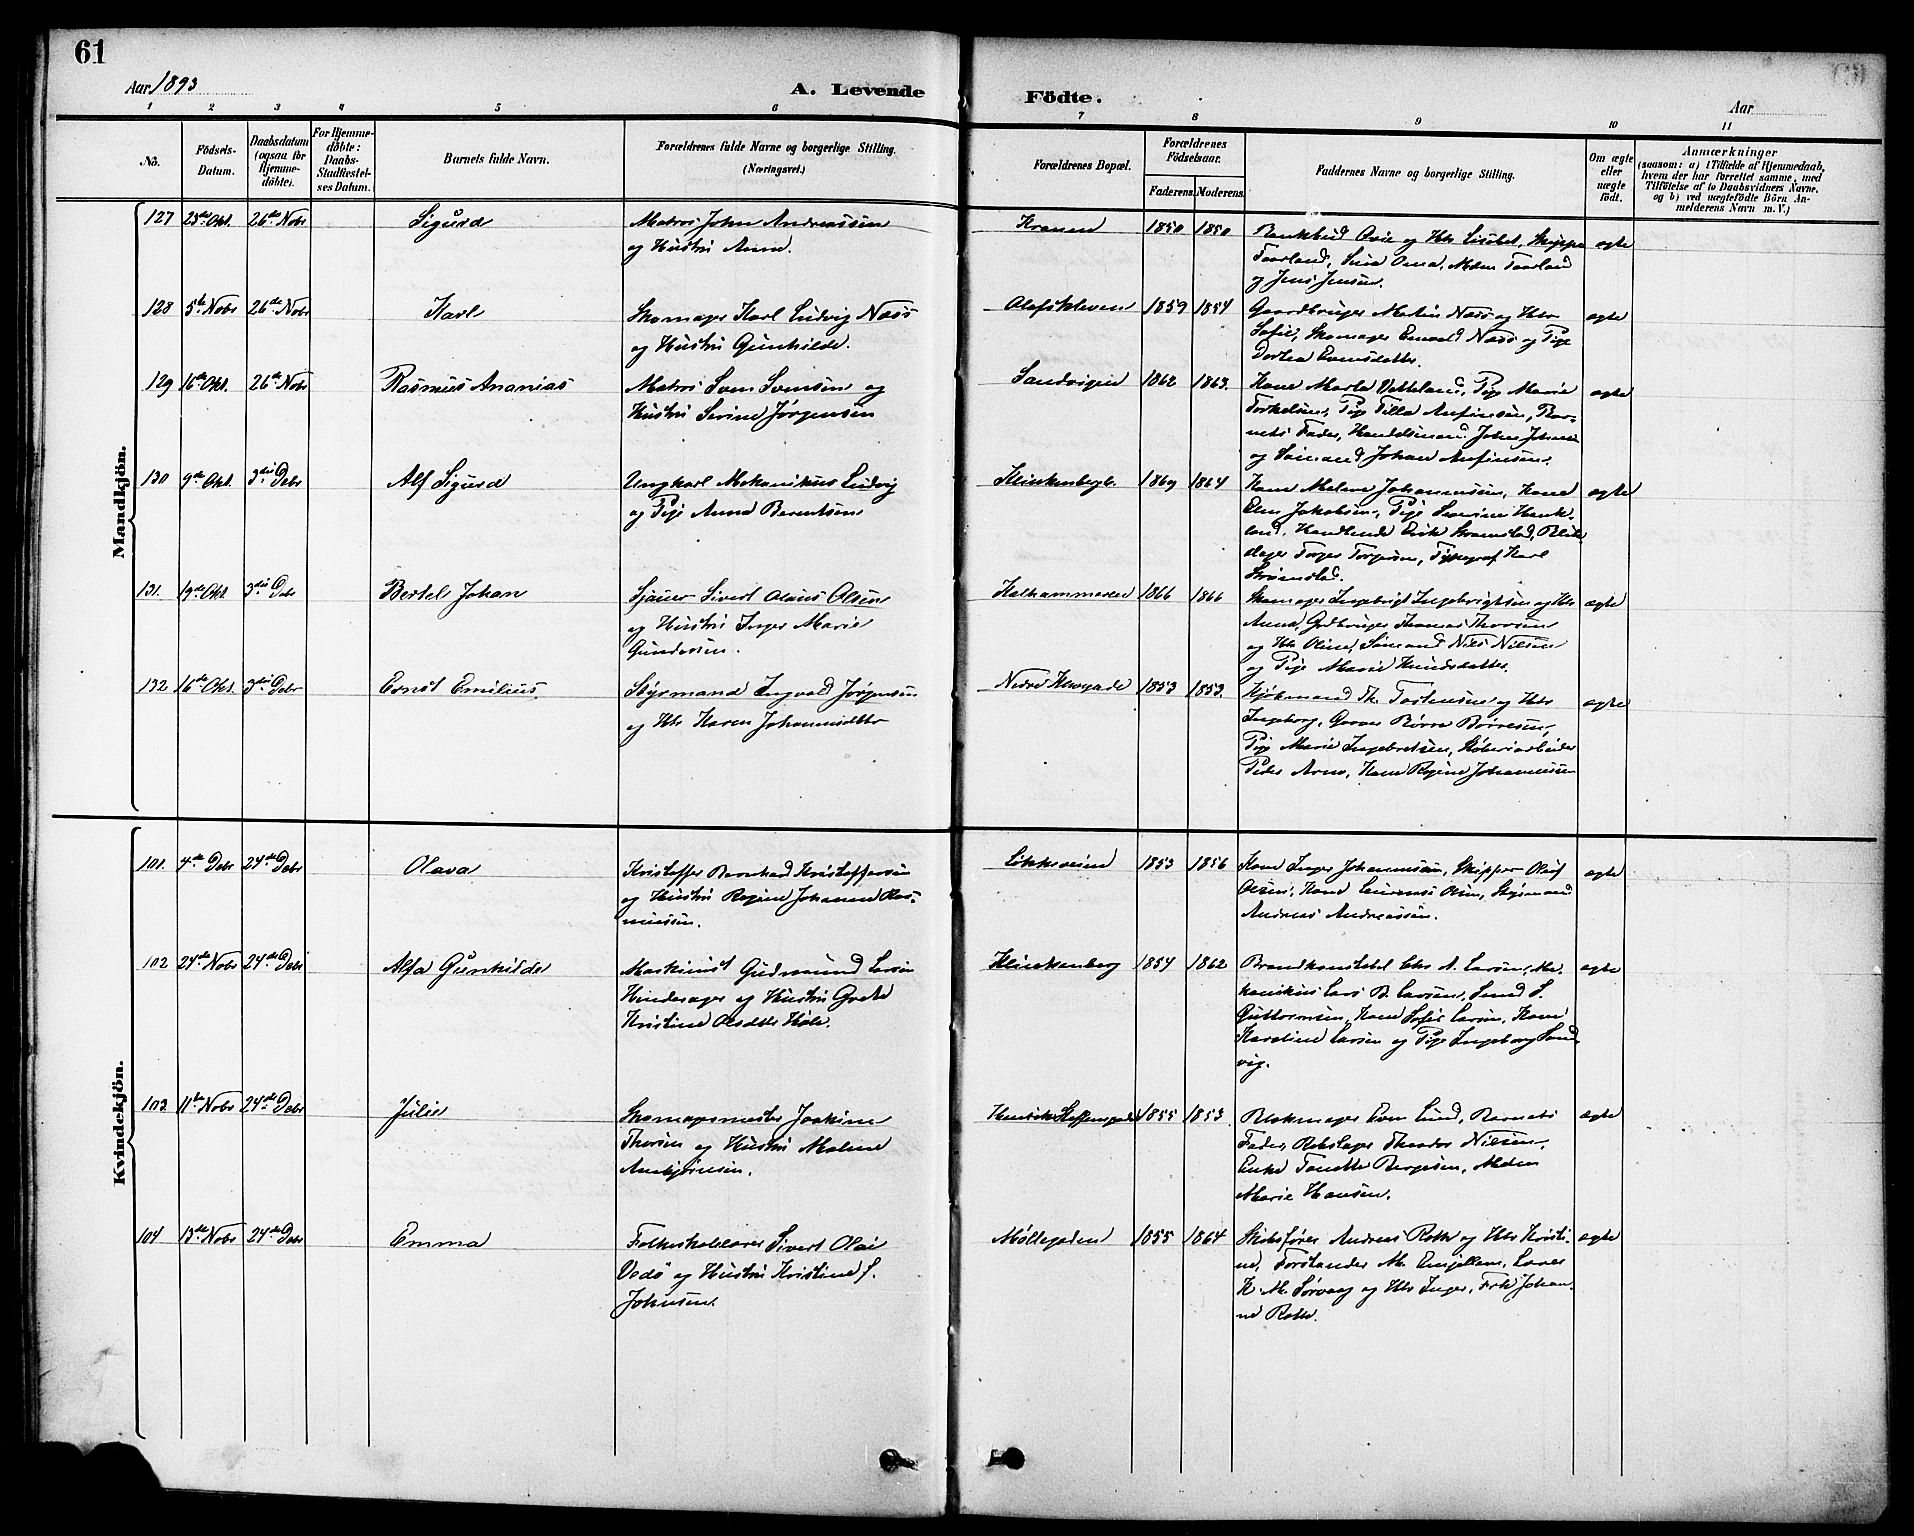 61
Aar 1893
A. Levende Födte.
Aar
1 2 3 4 5 6 7 8 9 10 11
No.
Födsels-Datum.
Daabsdatum (ogsaa for Hjemmedöbte).
For Hjemmedöbte: Daabs-Stadfæstelses Datum.
Barnets fulde Navn.
Forældrenes fulde Navne og borgerlige Stilling.
(Næringsvei.)
Forældrenes Bopæl.
Forældrenes Födselsaar.
Faderens. Moderens.
Faddernes Navne og borgerlige Stilling.
Om ægte eller uægte födt.
Anmærkninger
(saasom: a) i Tilfælde af Hjemmedaab,
hvem der har forrettet samme, med
Tilföielse af to Daabsvidners Navne,
og b) ved uægtefödte Börn Anmelderens Navn m. V.)
Mandkjön.
127 25de Okt. 26de Nobr Sigurd
Matros John Andreassen
og Hustru Anna.
Kranen 1850 1850
og Hbr Lisebet, Skipper
Taarland, Madm Taarland
og Jens Jensen.
ægte
128 5te Nobr 26de Nobr Karl
Skomager Karl Ludvig Næss
og Hustru Gunhilde.
Olafskleven 1859 1854
Gaardbruger Martin Næss og Hbr
Sofie, Skomager Næss og Pige
Dortea Evensdatter.
ægte
129 16de Okt. 26de Nobr Rasmus Ananias
Matros Sven Svensen og
Hustru Serine Jørgensen
Sandvigen 1862 1863.
Kone Marta Vetteland, Pige Marie
Torkelsen, Pige Tilla Anfinsen, Bar-
nets Fader, Handelsmand John
og Sømand Johan Anfinsen.
ægte
130 9de Okt. 3die Debr Alf Sigurd
Ungkarl Mekanikus Ludvig
og Pige Anna Berentsen
1869 1864
Kone Malene Johannesen, Kone
Elen Jakobsen, Pige Severine Hauk-
land, Handlende Erik Strømstad,
Torger Torgersen, Typograf Karl
Strømstad.
ægte
131. 19de Okt. 3die Debr Bertel Johan
Sjauer Sivert Olaus Olsen
og Hustru Inger Marie
Gundersen.
Kalhammeren 1866 1866
Skomager Ingebrigt Ingebrigtsen og Hbr
Anna, Gdbruger Thomas Thorsen
og Hbr Oline, Sømand Nils Nilsen
og Pige Marie Knudsdatter.
ægte
132 16de Okt. 3die Debr Ernst Emilius
Styrmand Ingvald Jørgensen
og Hbr Karen Johannesdatter
Nedre 1853 1853.
Kjøbmand Th. Torstensen og Hbr
Ingeborg, Garver Børre Børresen,
Pige Marie Ingebretsen, Støberiarbeider
Peder Arne, Kone Regine Johannessen
ægte
Kvindekjön.
101. 4de Debr 24de Debr Olava
Kristoffer Bernhard Kristoffersen
og Hustru Regine Johanne Ras-
mussen.
Løkkeveien 1853 1856
Kone Inger Johannesen, Skipper Oluf
Olsen, Kone Laurense Olsen, Styrmand
Andreas Andreassen.
ægte
102 24de Nobr 24de Debr Alfa Gunhilde
Maskinist Gudmund Larsen
Hindesager og Hustru Grete
Kristine Olsdtr Hole.
Klinkenberg 1854 1862
Brandkonstabel Chr A. Larsen, Me-
kanikus Lars B. Larsen, Svend S.
Guttormsen, Kone Sofie Larsen, Kone
Karoline Larsen og Pige Ingeborg Sand-
vig.
ægte
103. 11te Nobr 24de Debr Julie
Skomagermester Joakim
Thorsen og Hustru Malene
Annbjørnsen.
Henrik Steffensgade 1855 1853
Blokmager Even Lund, Barnets
Fader, Rebslager Theodor Nilsen,
Enke Tonette Bergesen, Madm
Marie Hansen.
ægte
104 13de Nobr 24de Debr Emma
Folkeskolelærer Sivert Olai
Vedø og Hustru Kristine f.
Johnsen.
Møllegaden 1855 1864
Skibsfører Andreas Roth og Hbr Kristi-
ne, Forstander M. Emjellem, Lærer
K. M. Sørvaag og Hbr Inger, Frk Johan-
ne Roth.
ægte